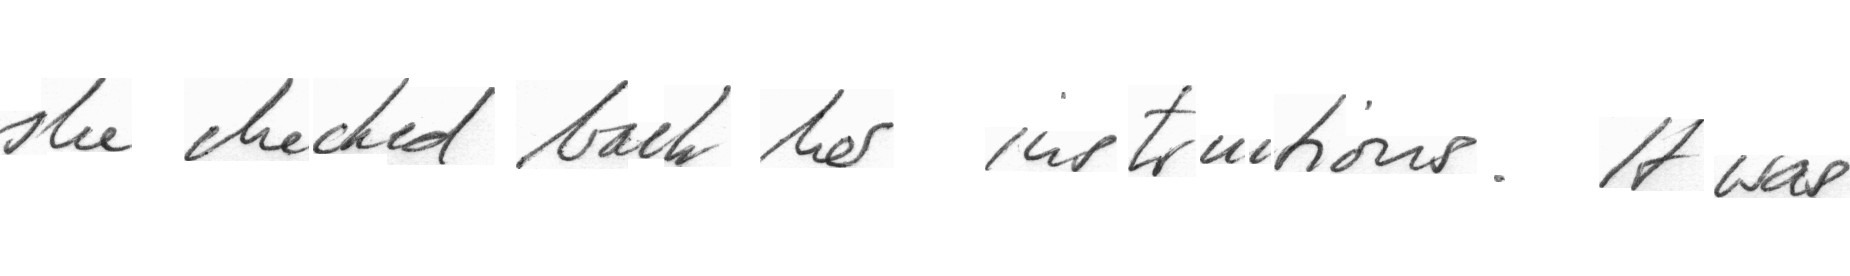 she checked back her instructions. It was